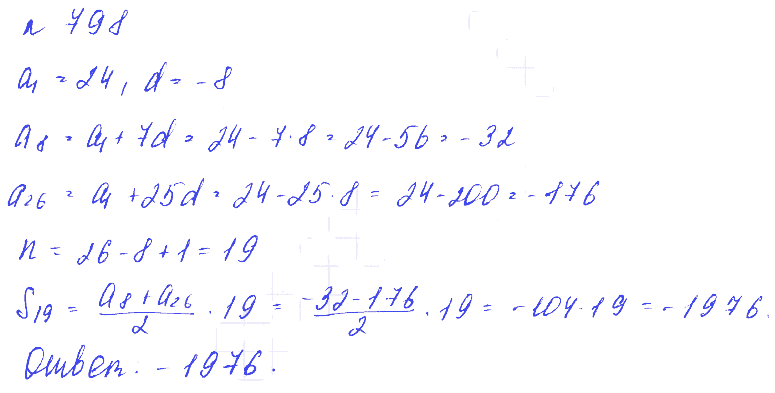 n 798
a₁ = 24, d = -8
a₈ = a₁ + 7d = 24 - 7·8 = 24 - 56 = -32
a₂₆ = a₁ + 25d = 24 - 25·8 = 24 - 200 = -176
n = 26 - 8 + 1 = 19
S₁₉ = (a₈ + a₂₆)/2 · 19 = (-32 - 176)/2 · 19 = -104·19 = -1976.
Ответ: -1976.